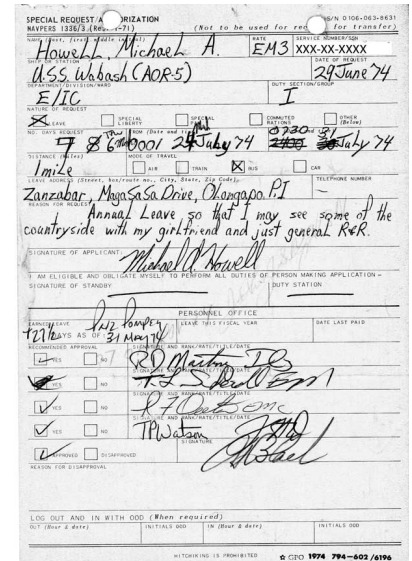 SPECIAL REQUEST/AUTHORIZATION
NAVPERS 1336/3 (Rev. 1-71) (Not to be used for req for transfer) S/N 0106-063-8631
NAME (Last, first, middle initial) RATE SERVICE NUMBER/SSN
Howell, Michael A. EM3 XXX-XX-XXXX
SHIP OR STATION DATE OF REQUEST
U.S.S. Wabash (AOR-5) 29 June 74
DEPARTMENT/DIVISION/WARD DUTY SECTION/GROUP
E/IC I
NATURE OF REQUEST
X LEAVE SPECIAL LIBERTY SPECIAL COMMUTED RATIONS OTHER (Below)
NO. DAYS REQUEST FROM (Date and
7 8 0001 July 74 0730 July 74
DISTANCE (Miles) MODE OF TRAVEL
1 mile AIR TRAIN X BUS CAR
LEAVE ADDRESS (Street, box/route no., City, State, Zip Code) TELEPHONE NUMBER
Zanzabar, MagaSaSa Drive, Olongapo P.I —
REASON FOR REQUEST
Annual Leave so that I may see some of the
countryside with my girlfriend and just general R&R.
SIGNATURE OF APPLICANT
Michael A Howell
I AM ELIGIBLE AND OBLIGATE MYSELF TO PERFORM ALL DUTIES OF PERSON MAKING APPLICATION —
SIGNATURE OF STANDBY DUTY STATION
PERSONNEL OFFICE
EARNED LEAVE LEAVE THIS FISCAL YEAR DATE LAST PAID
+27½ DAYS AS OF 31 May 74
RECOMMENDED APPROVAL SIGNATURE AND RANK/RATE/TITLE/DATE
YES NO R D Martin
SIGNATURE AND RANK/RATE/TITLE/DATE
YES NO
SIGNATURE AND RANK/RATE/TITLE/DATE
YES NO
SIGNATURE AND RANK/RATE/TITLE/DATE
YES NO TP Watson
SIGNATURE
APPROVED DISAPPROVED
REASON FOR DISAPPROVAL
LOG OUT AND IN WITH OOD (When required)
OUT (Hour & date) INITIALS OOD IN (Hour & date) INITIALS OOD
HITCHIKING IS PROHIBITED ☆ GPO 1974 794-602/6196